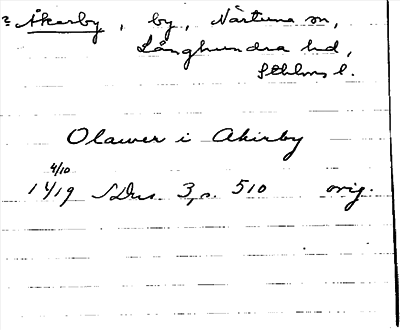 ? Åkerby, by, Närtuna sn,
Långhundra hd,
Sthlms l.
Olawer i Akirby
4/10
1419 SDns 3, s. 510 orig.